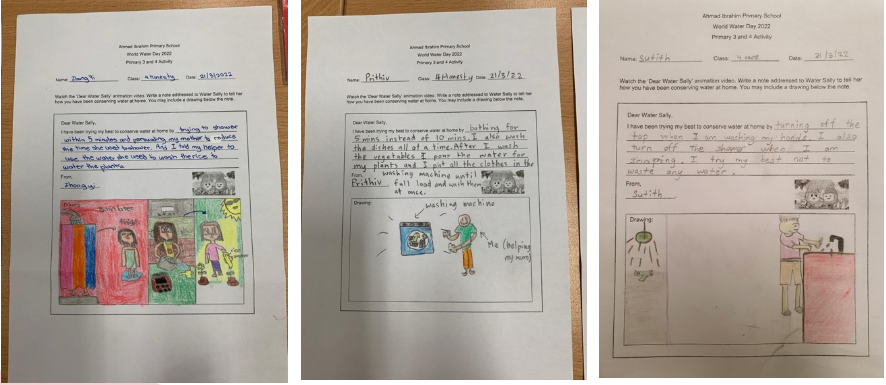 Ahmad Ibrahim Primary School
World Water Day 2022
Primary 3 and 4 Activity
Name: Zhong Yi Class: 4 Honesty Date: 21/3/2022
Watch the 'Dear Water Sally' animation video. Write a note addressed to Water Sally to tell her
how you have been conserving water at home. You may include a drawing below the note.
Dear Water Sally,
I have been trying my best to conserve water at home by trying to shower
within 5 minutes and persuading my mother to reduce
the time she uses to shower. And I told my helper to
use the water she used to wash the rice to
water the plants.
From,
Zhong yi
Ahmad Ibrahim Primary School
World Water Day 2022
Primary 3 and 4 Activity
Name: Prithiv Class: 4 Honesty Date: 21/3/22
Watch the 'Dear Water Sally' animation video. Write a note addressed to Water Sally to tell her
how you have been conserving water at home. You may include a drawing below the note.
Dear Water Sally,
I have been trying my best to conserve water at home by bathing for
5 mins instead of 10 mins. I also wash
the dishes all at a time. After I wash
the vegetables I pour the water for
my plants and I put all the clothes in the
washing machine until
From,
Prithiv full load and wash them
at once.
Drawing:
washing machine
Me (helping
my mum)
Ahmad Ibrahim Primary School
World Water Day 2022
Primary 3 and 4 Activity
Name: Sutith Class: Date: 21/3/22
Watch the 'Dear Water Sally' animation video. Write a note addressed to Water Sally to tell her
how you have been conserving water at home. You may include a drawing below the note.
Dear Water Sally,
I have been trying my best to conserve water at home by turning off the
tap when I am washing my hands. I also
turn off the shower when I am
I try my best not to
waste any water.
From,
Sutith
Drawing: